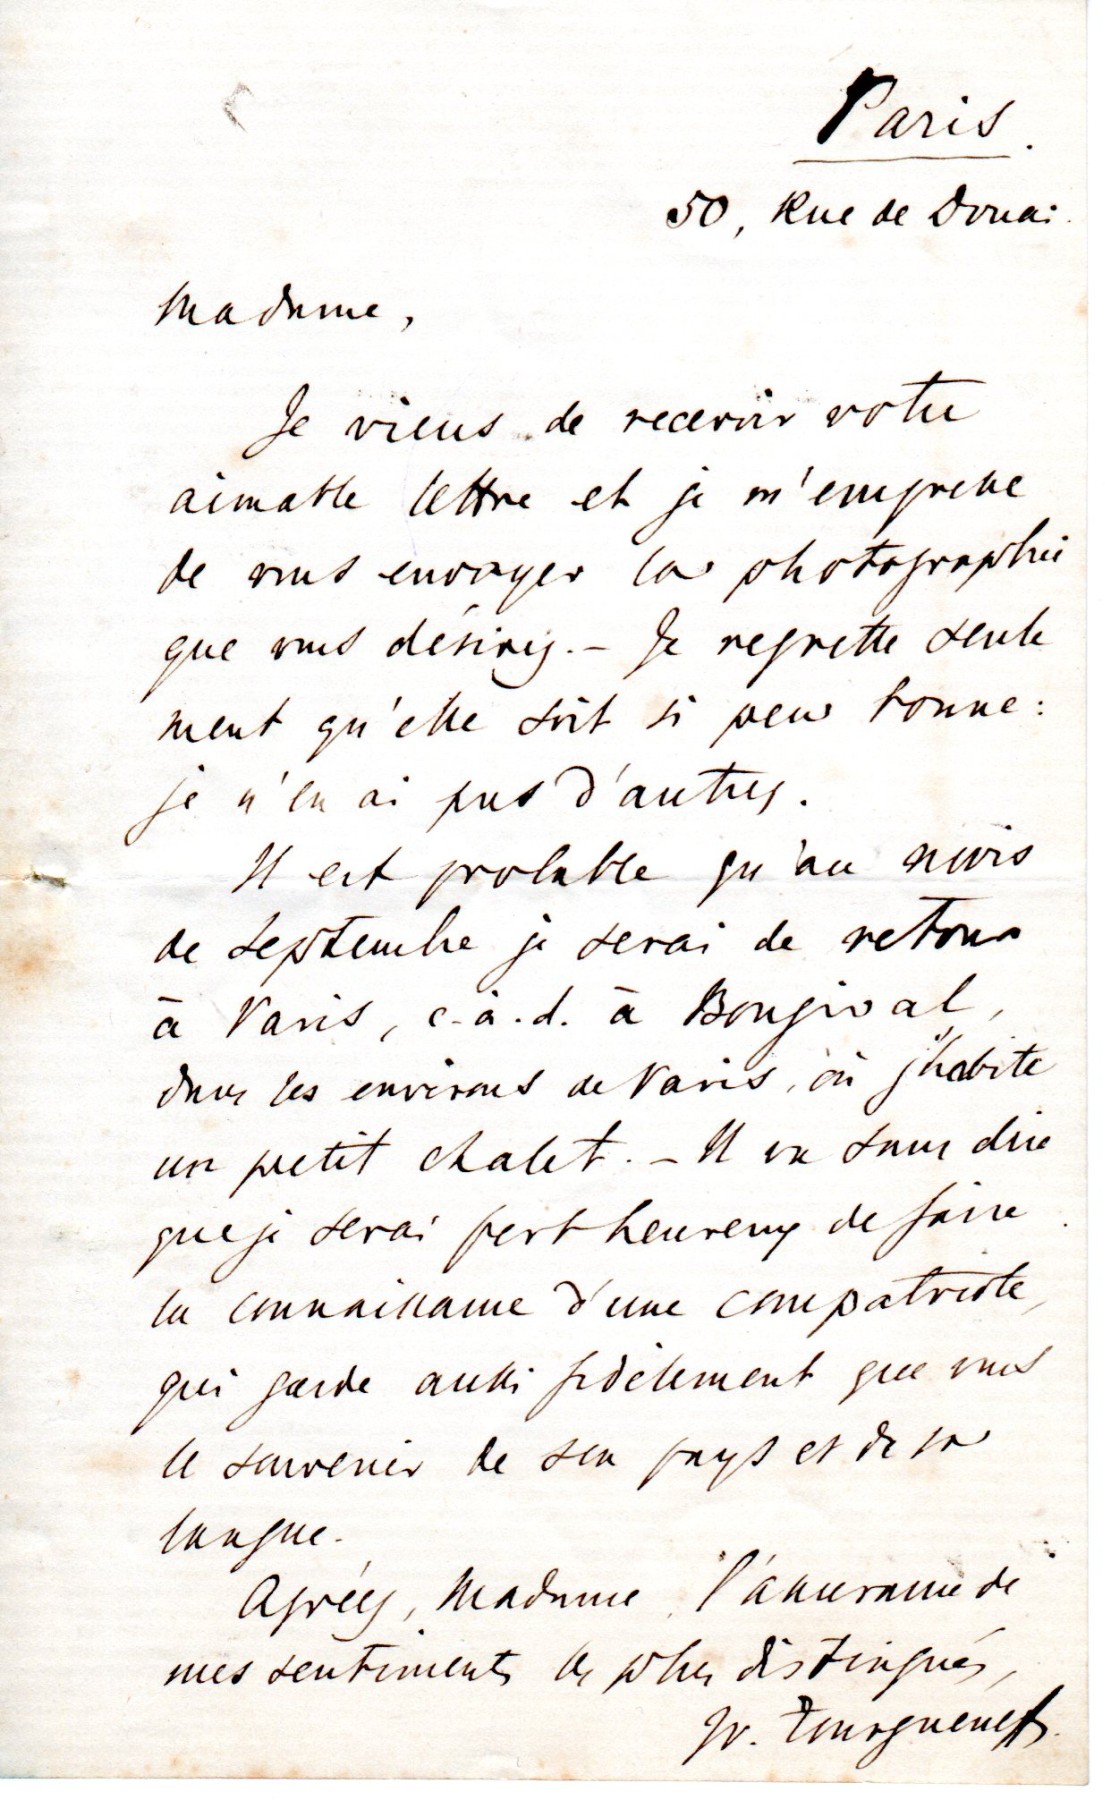 Paris.
50, Rue de Douai.
Madame,
Je viens de recevoir votre
aimable lettre et je m'empresse
de vous envoyer la photographie
que vous désirez. – Je regrette seule
ment qu'elle soit si peu bonne :
je n'en ai pas d'autres.
Il est probable qu'au mois
de septembre je serai de retour
à Paris, c.-à.-d. à Bougival,
dans les environs de Paris, où j'habite
un petit chalet. – Il va sans dire
que je serai fort heureux de faire
la connaissance d'une compatriote,
qui garde aussi fidèlement que vous
le souvenir de son pays et de sa
langue.
Agréez, Madame, l'assurance de
mes sentiments les plus distingués,
Iv. Tourguéneff.